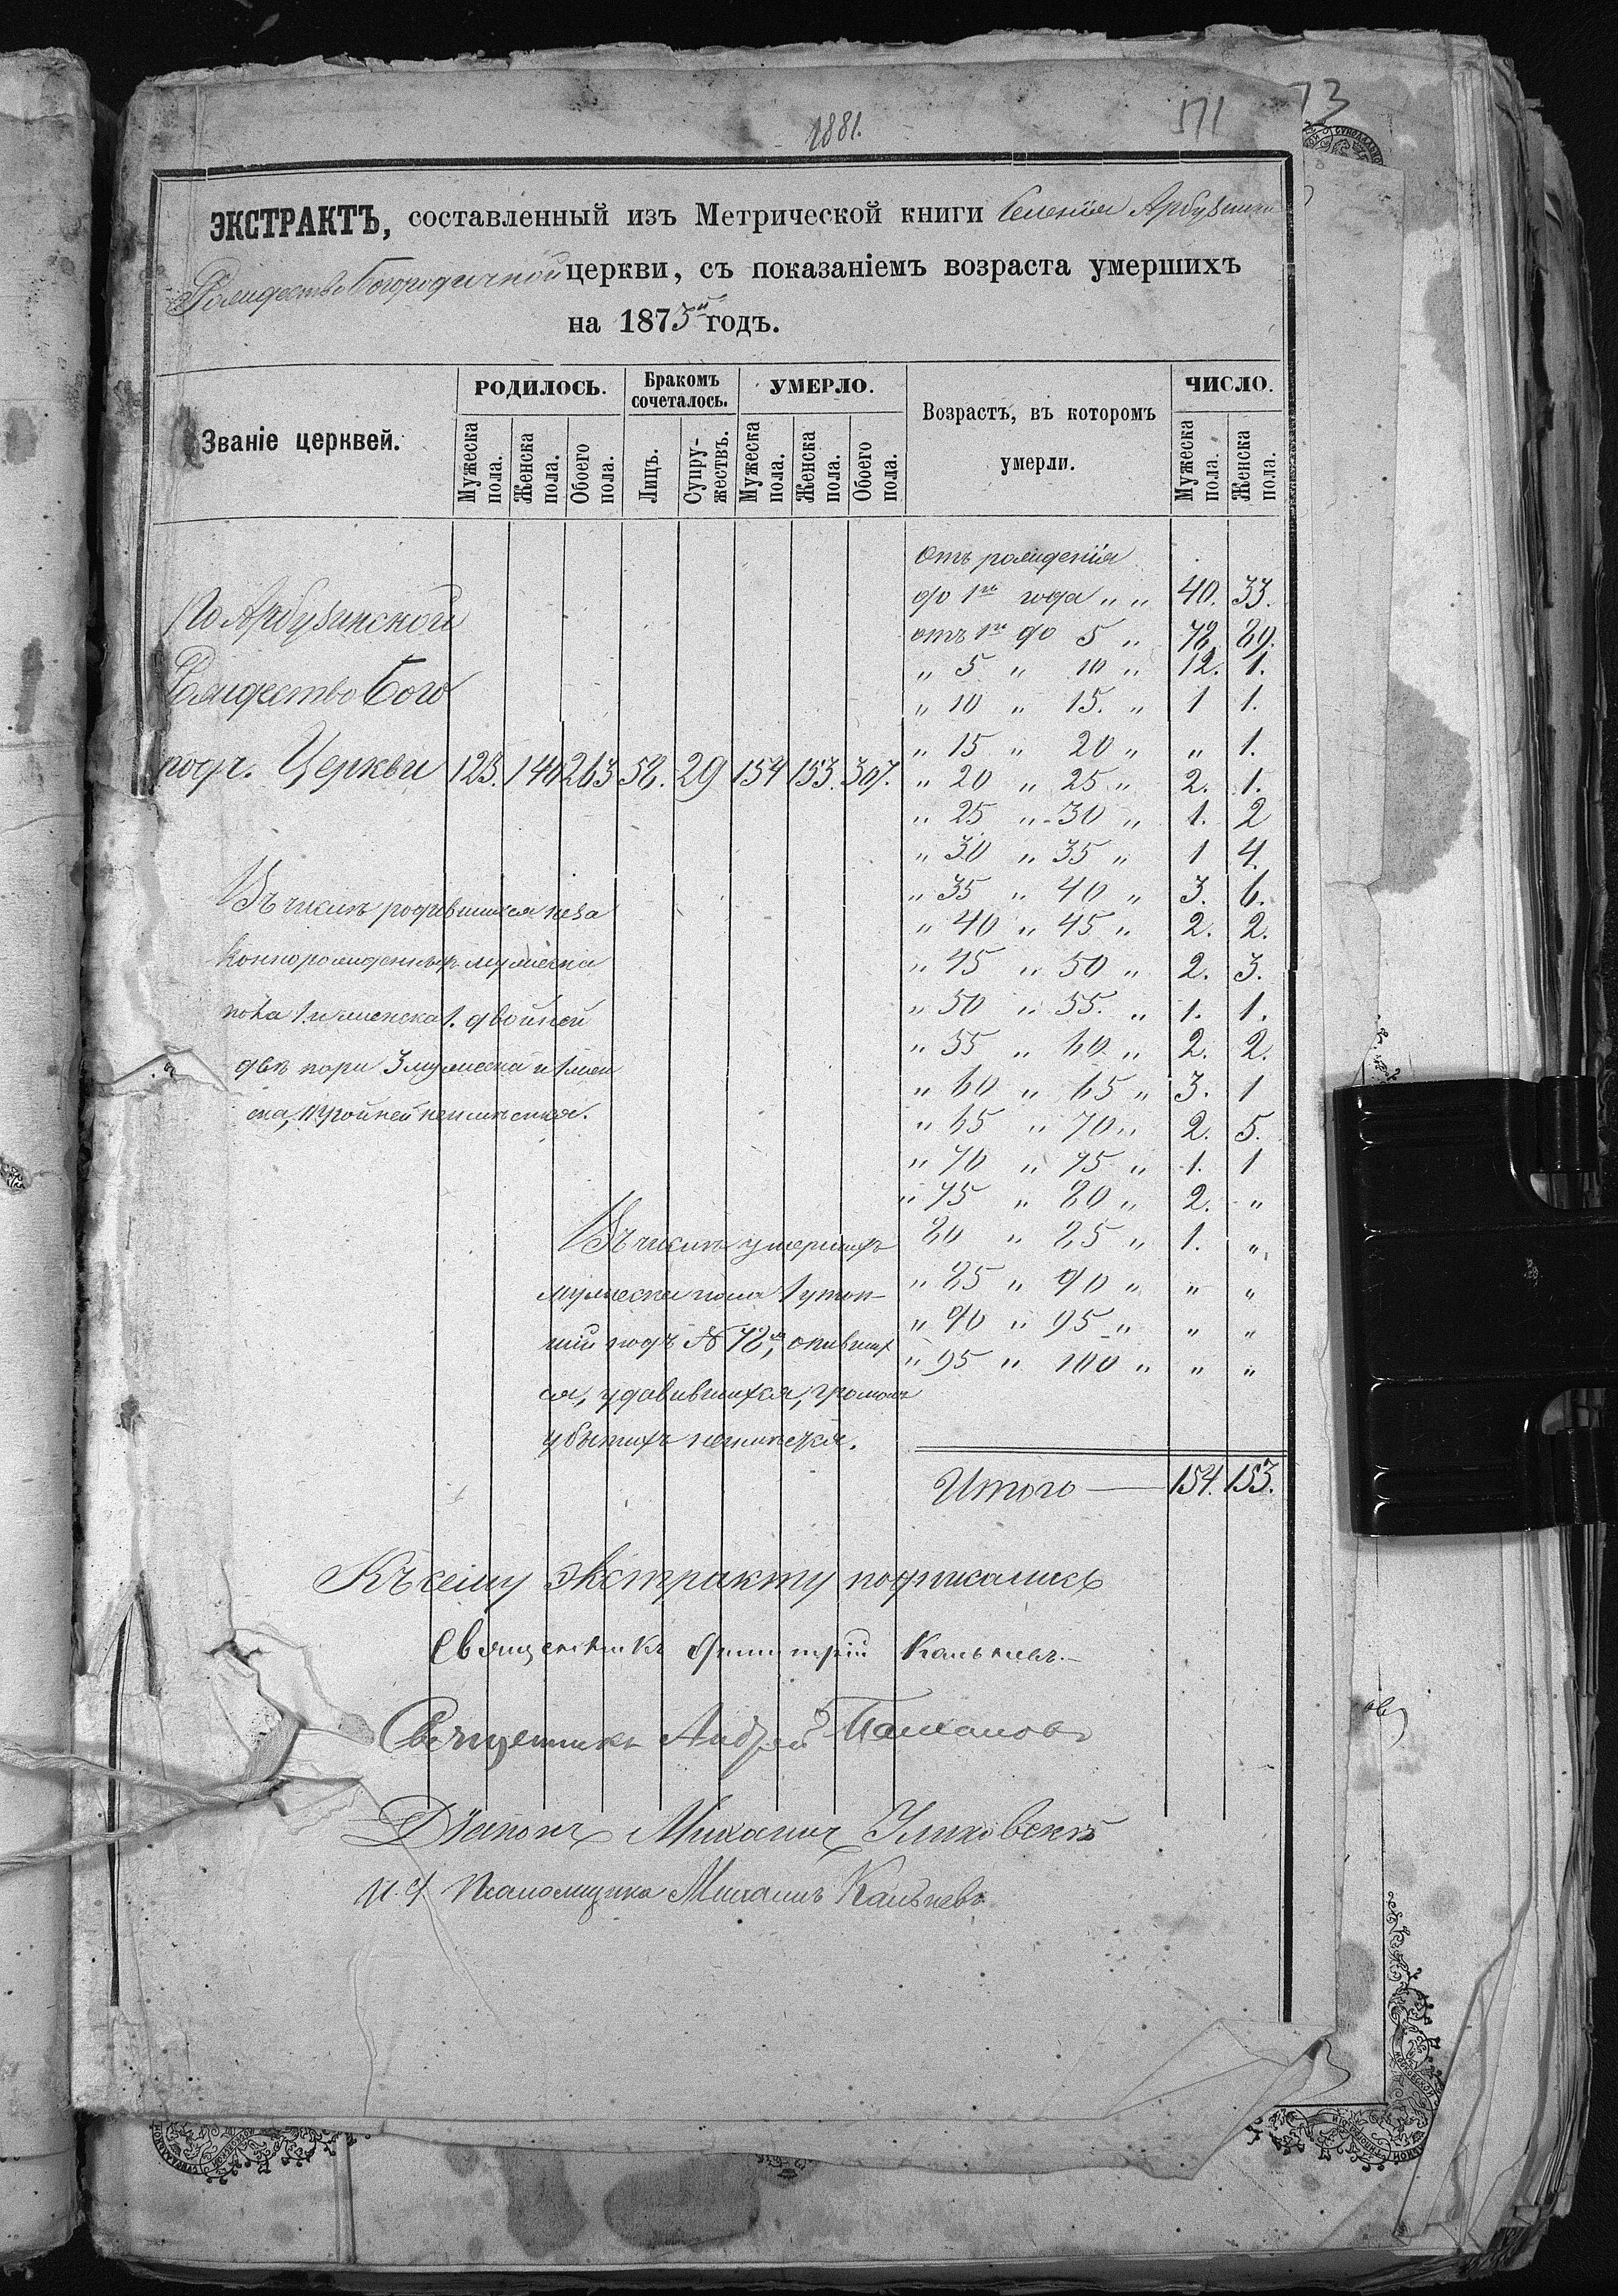 1881.
511
73
ЭКСТРАКТЪ, составленный изъ Метрической книги Селенія Арбузинки
Рождество Богородичной церкви, съ показаніемъ возраста умершихъ
на 1875й годъ.
Званіе церквей.
РОДИЛОСЬ.
Бракомъ сочеталось.
УМЕРЛО.
Возрастъ, въ которомъ умерли.
ЧИСЛО.
Мужеска пола.
Женска пола.
Обоего пола.
Лицъ.
Супружествъ.
Мужеска пола.
Женска пола.
Обоего пола.
Мужеска пола.
Женска пола.
Отъ рожденія
до 1го года „ „ 40. 33.
отъ 1го до 5 „ 78. 89.
„ 5 „ 10 „ 12. 1.
„ 10 „ 15. „ 1 1.
„ 15 „ 20 „ „ 1.
„ 20 „ 25 „ 2. 1.
„ 25 „ 30 „ 1. 2
„ 30 „ 35 „ 1 4.
„ 35 „ 40 „ 3. 6.
„ 40 „ 45 „ 2. 2.
„ 45 „ 50 „ 2. 3.
„ 50 „ 55. „ 1. 1.
„ 55 „ 60 „ 2. 2.
„ 60 „ 65 „ 3. 1
„ 65 „ 70 „ 2. 5.
„ 70 „ 75 „ 1. 1
„ 75 „ 80 „ 2. „
80 „ 85 „ 1. „
„ 85 „ 90 „ „ „
„ 90 „ 95 „ „ „
„ 95 „ 100 „ „ „
Итого — 154. 153.
По Арбузинской
Рождество Бого
род. Церкви 123. 140 263 58. 29 154 153. 307.
Въ числѣ родившихся неза
коннорожденныхъ мужеска
пола 1. и женска 1. двойней
двѣ пары 3 мужеска и 1 жен
ска, тройней неимѣется.
Въ числѣ умершихъ
мужеска пола 1 утоп-
шій подъ № 78м, опивших
ся, удавившихся, громомъ
убитыхъ неимѣется.
Къ сему экстракту подписались
Священникъ Димитрій
Священникъ Андрей
Діаконъ Михаилъ
И. д. Псаломщика Михаилъ